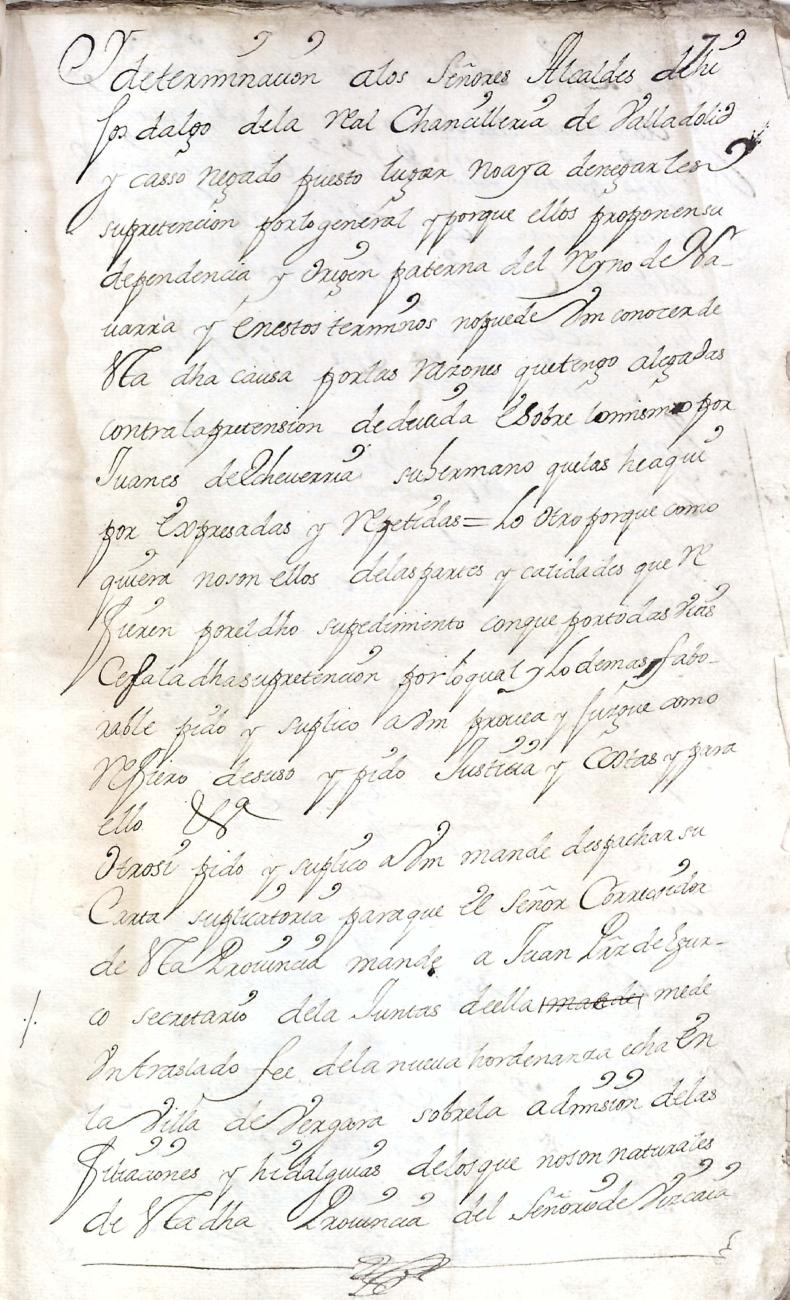 7
Y determinacion alos Señores Alcaldes dehi
jos dalgo dela Real Chancilleria de Valladolid
y casso negado puesto lugar no aya denegarles
supretencion por lo general y porque ellos proponen su
dependencia y origen paterna del Reyno de Na-
uarra y en estos terminos no puede Vm conocer de
esta dha causa por las razones que tengo alegadas
contra la pretension deducida e sobre lo mismo por
Juanes de Echeuerria su hermano que las he aqui
por expresadas y repetidas = Lo otro porque como
quiera no son ellos delas partes y calidades que re
fieren por el dho supedimiento conque por todas vias
Cesa la dha supretencion por lo qual y lo demas fabo-
rable pido y suplico a Vm prouea y juzgue como
Refiero desuso y pido Justicia y Costas y para
ello &ª
Otrosi pido y suplico a Vm mande despachar su
Carta suplicatoria para que el Señor Corregidor
de esta Prouincia mande a Juan Prz de Egur-
co secretario dela Juntas de ella me de
Un traslado fee dela nueua hordenanza echa en
la Villa de Vergara sobre la admision delas
filiaciones y hidalguias delos que no son naturales
de esta dha Prouincia del Señorio de Vizcaia